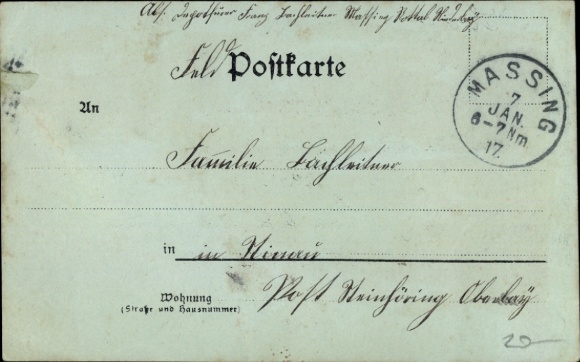 Abs. Franz Bachleitner Massing Rottal Niederbay
Feld Postkarte
MASSING
7 JAN.
6-7 Nm
17.
An
Familie Bachleitner
in
in
Wohnung
(Straße und Hausnummer)
Post Steinhöring Oberbay
20